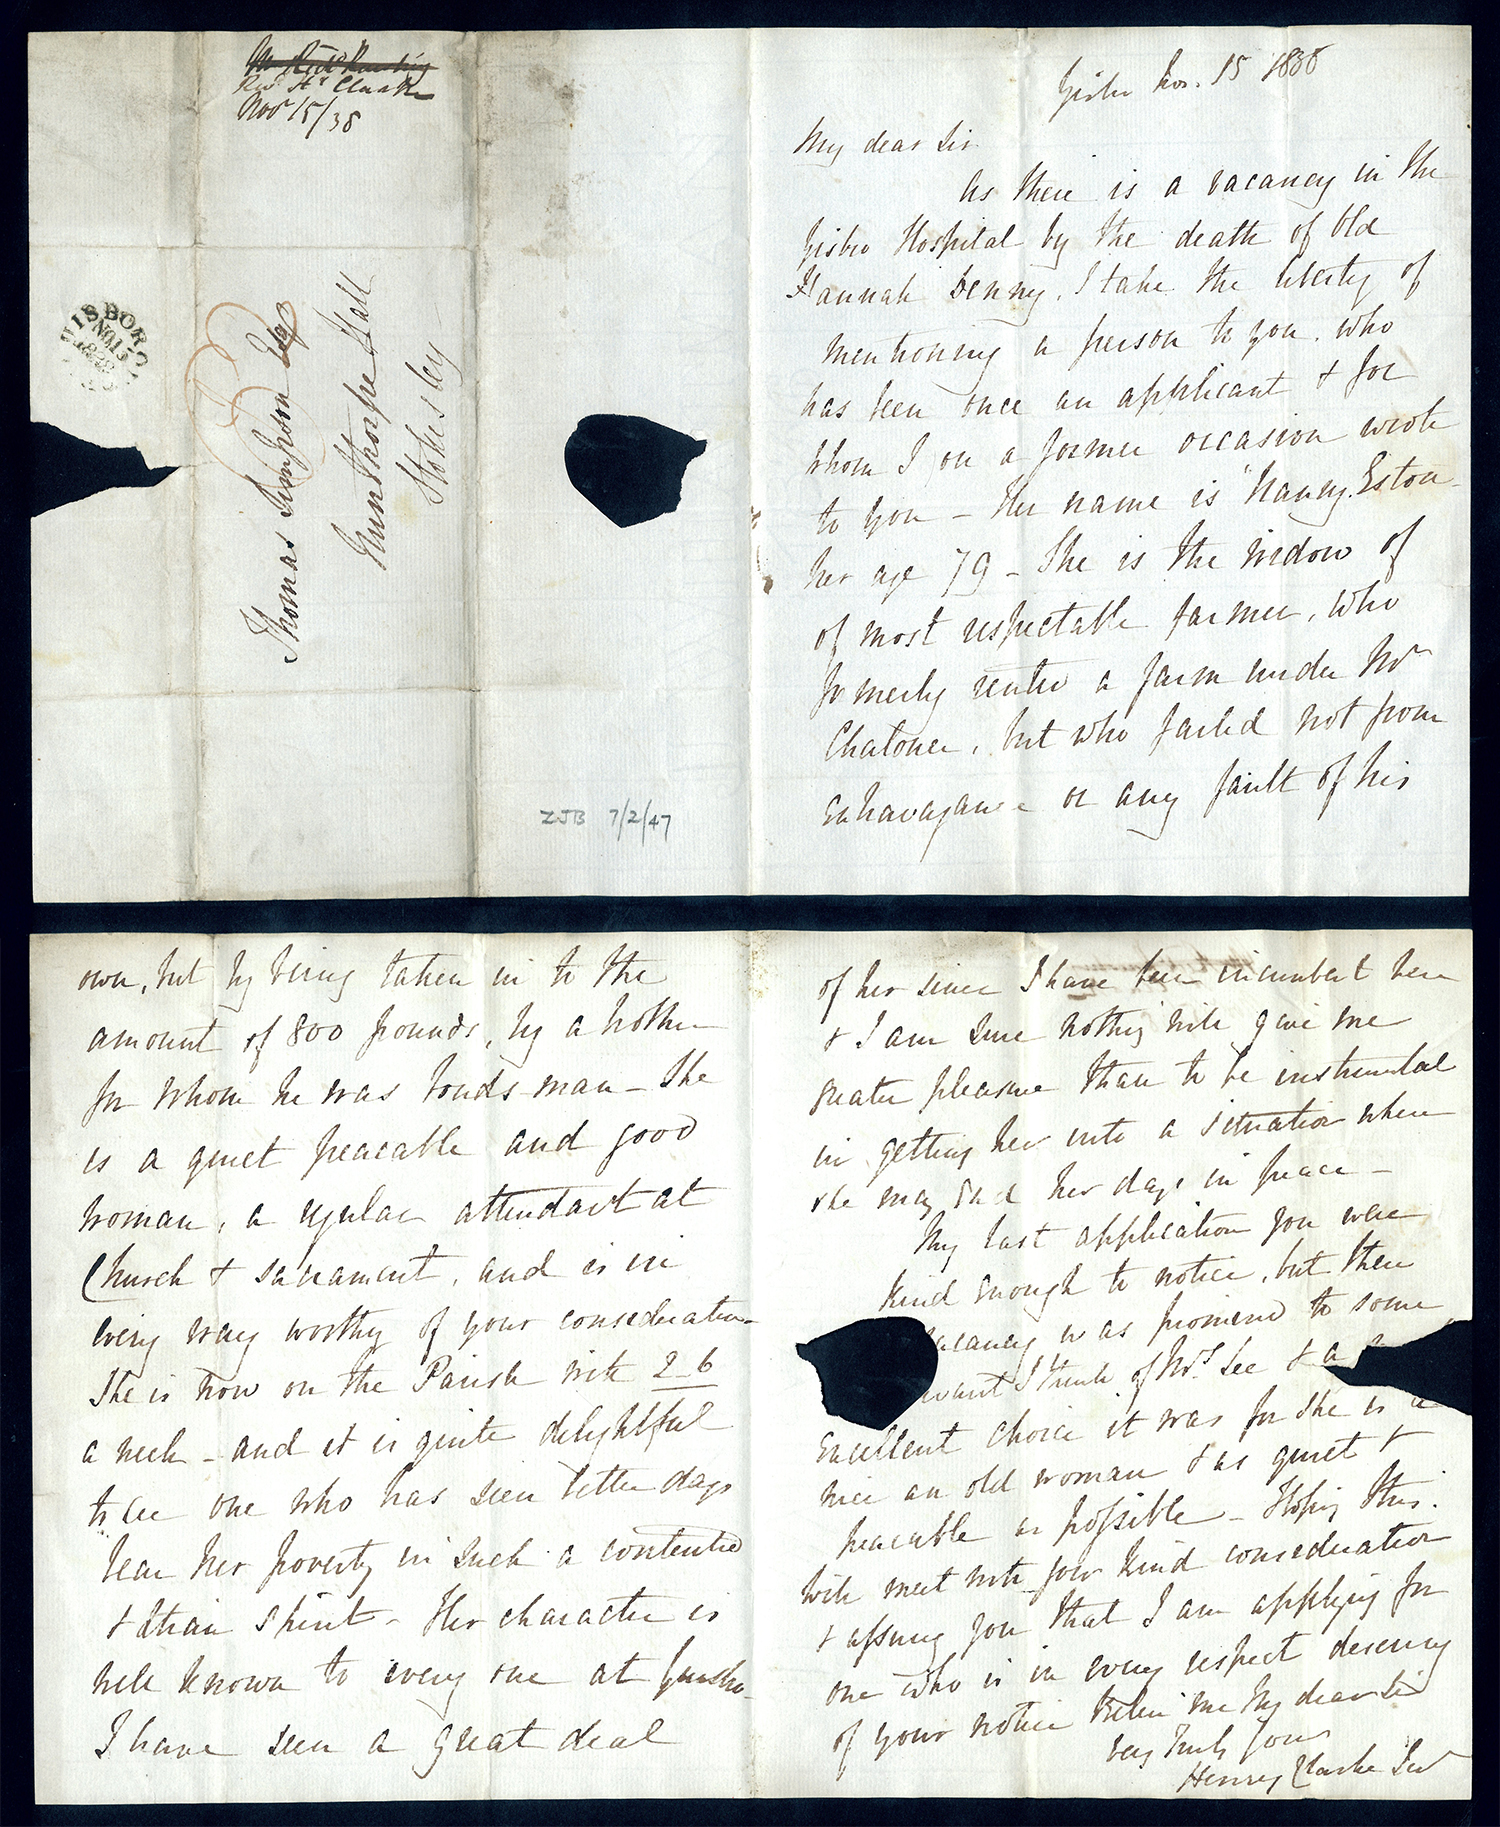 Revd Hy Clarke
Novr 15/38
GISBORO
NO 15
1838
Thomas Simpson Esqr
Nunthorpe Hall
Stokesley
ZJB 7/2/47
Gisbro Nov. 15 1838
My dear Sir
As there is a vacancy in the
Gisbro Hospital by the death of Old
Hannah Denny, I take the liberty of
mentioning a person to you, who
has been once an applicant & for
whom I on a former occasion wrote
to you - Her name is Nanny Eston
her age 79 - She is the widow of
of most respectable farmer, who
formerly rented a farm under Mr
Chaloner, but who failed not from
extravagance or any fault of his
own, but by being taken in to the
amount of 800 pounds, by a brother
for whom he was bonds-man - She
is a quiet peaceable and good
woman, a regular attendant at
Church & sacrament, and is in
every way worthy of your consideration
She is now on the Parish with 2-6
a week - and it is quite delightful
to see one who has seen better days
bear her poverty in such a contented
& spirit - Her character is
well known to every one at Guisbro
I have seen a great deal
of her since I have been incumbent here
& I am sure nothing will give me
greater pleasure than to be instrumental
in getting her into a situation where
she may end her days in peace -
My last application you were
kind enough to notice, but then
vacancy was promised to some
I think of Mrs. Lee & a
excellent choice it was for she is a
nice an old woman & as quiet &
peaceable as possible - Hoping this
will meet with your kind consideration
& assuring you that I am applying for
one who is in every respect deserving
of your notice Believe me My dear Sir
very truly yours
Henry Clarke